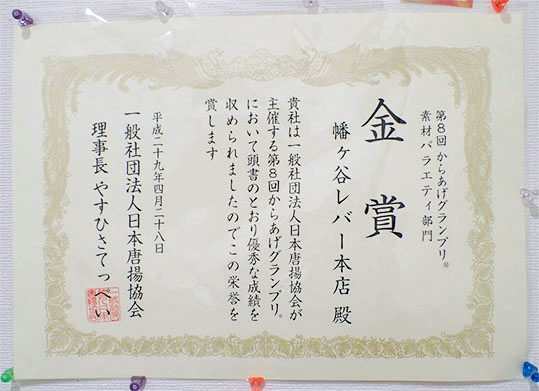 第8回 からあげグランプリ®
素材バラエティ部門
金賞
幡ヶ谷レバー本店 殿
貴社は一般社団法人日本唐揚協会が
主催する第8回からあげグランプリ®
において頭書のとおり優秀な成績を
収められましたのでこの栄誉を
賞します
平成二十九年四月二十八日
一般社団法人日本唐揚協会
理事長 やすひさてっぺい